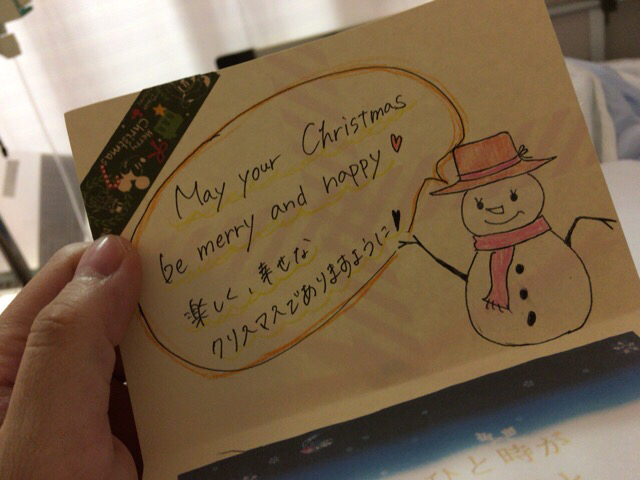 Merry
Christmas
May your Christmas
be merry and happy
楽しく、幸せな
クリスマスでありますように
トと時が